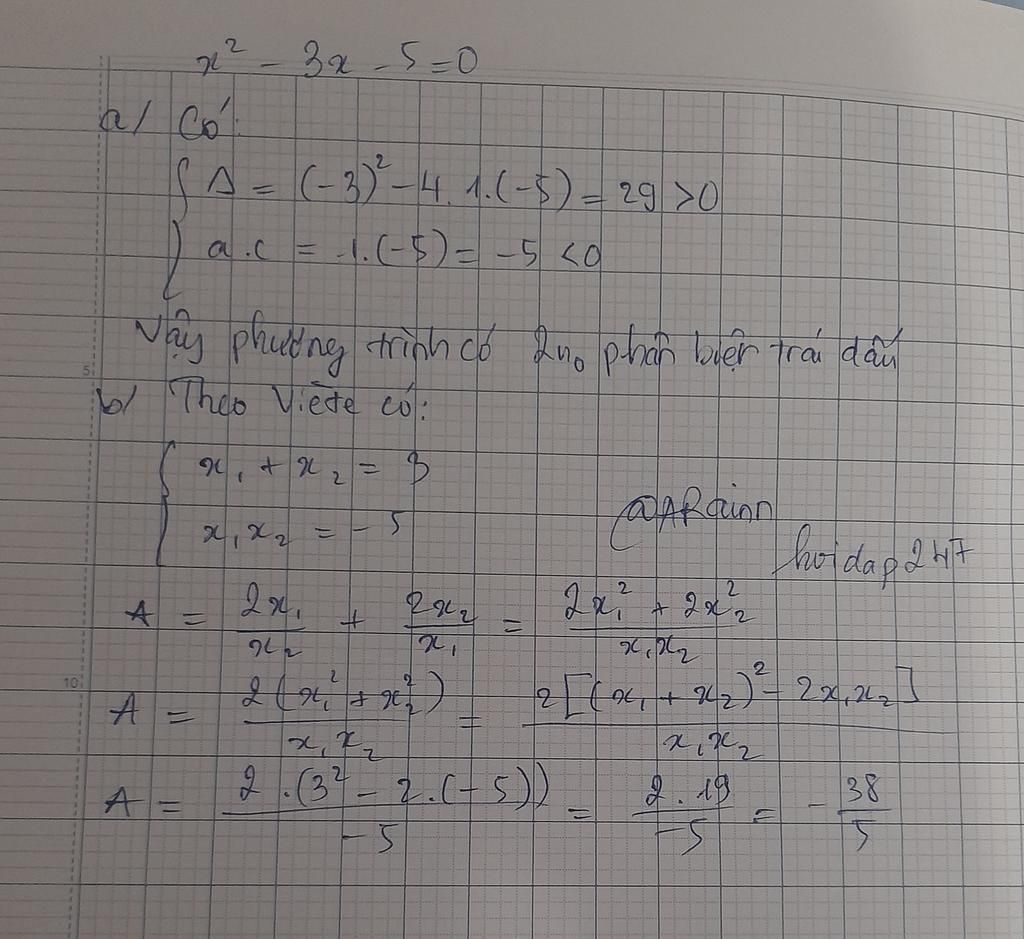 x² - 3x - 5 = 0
a/ Có:
{ Δ = (-3)² - 4.1.(-5) = 29 > 0
a.c = 1.(-5) = -5 < 0
Vậy phương trình có 2 n₀ phân biệt trái dấu
5
b/ Theo Viète có:
{ x₁ + x₂ = 3
x₁x₂ = -5
@ARainn
hoidap247
A = 2x₁/x₂ + 2x₂/x₁ = (2x₁² + 2x₂²)/(x₁x₂)
10
A = 2(x₁² + x₂²)/(x₁x₂) = 2[(x₁ + x₂)² - 2x₁x₂]/(x₁x₂)
A = 2.(3² - 2.(-5))/(-5) = 2.19/(-5) = -38/5